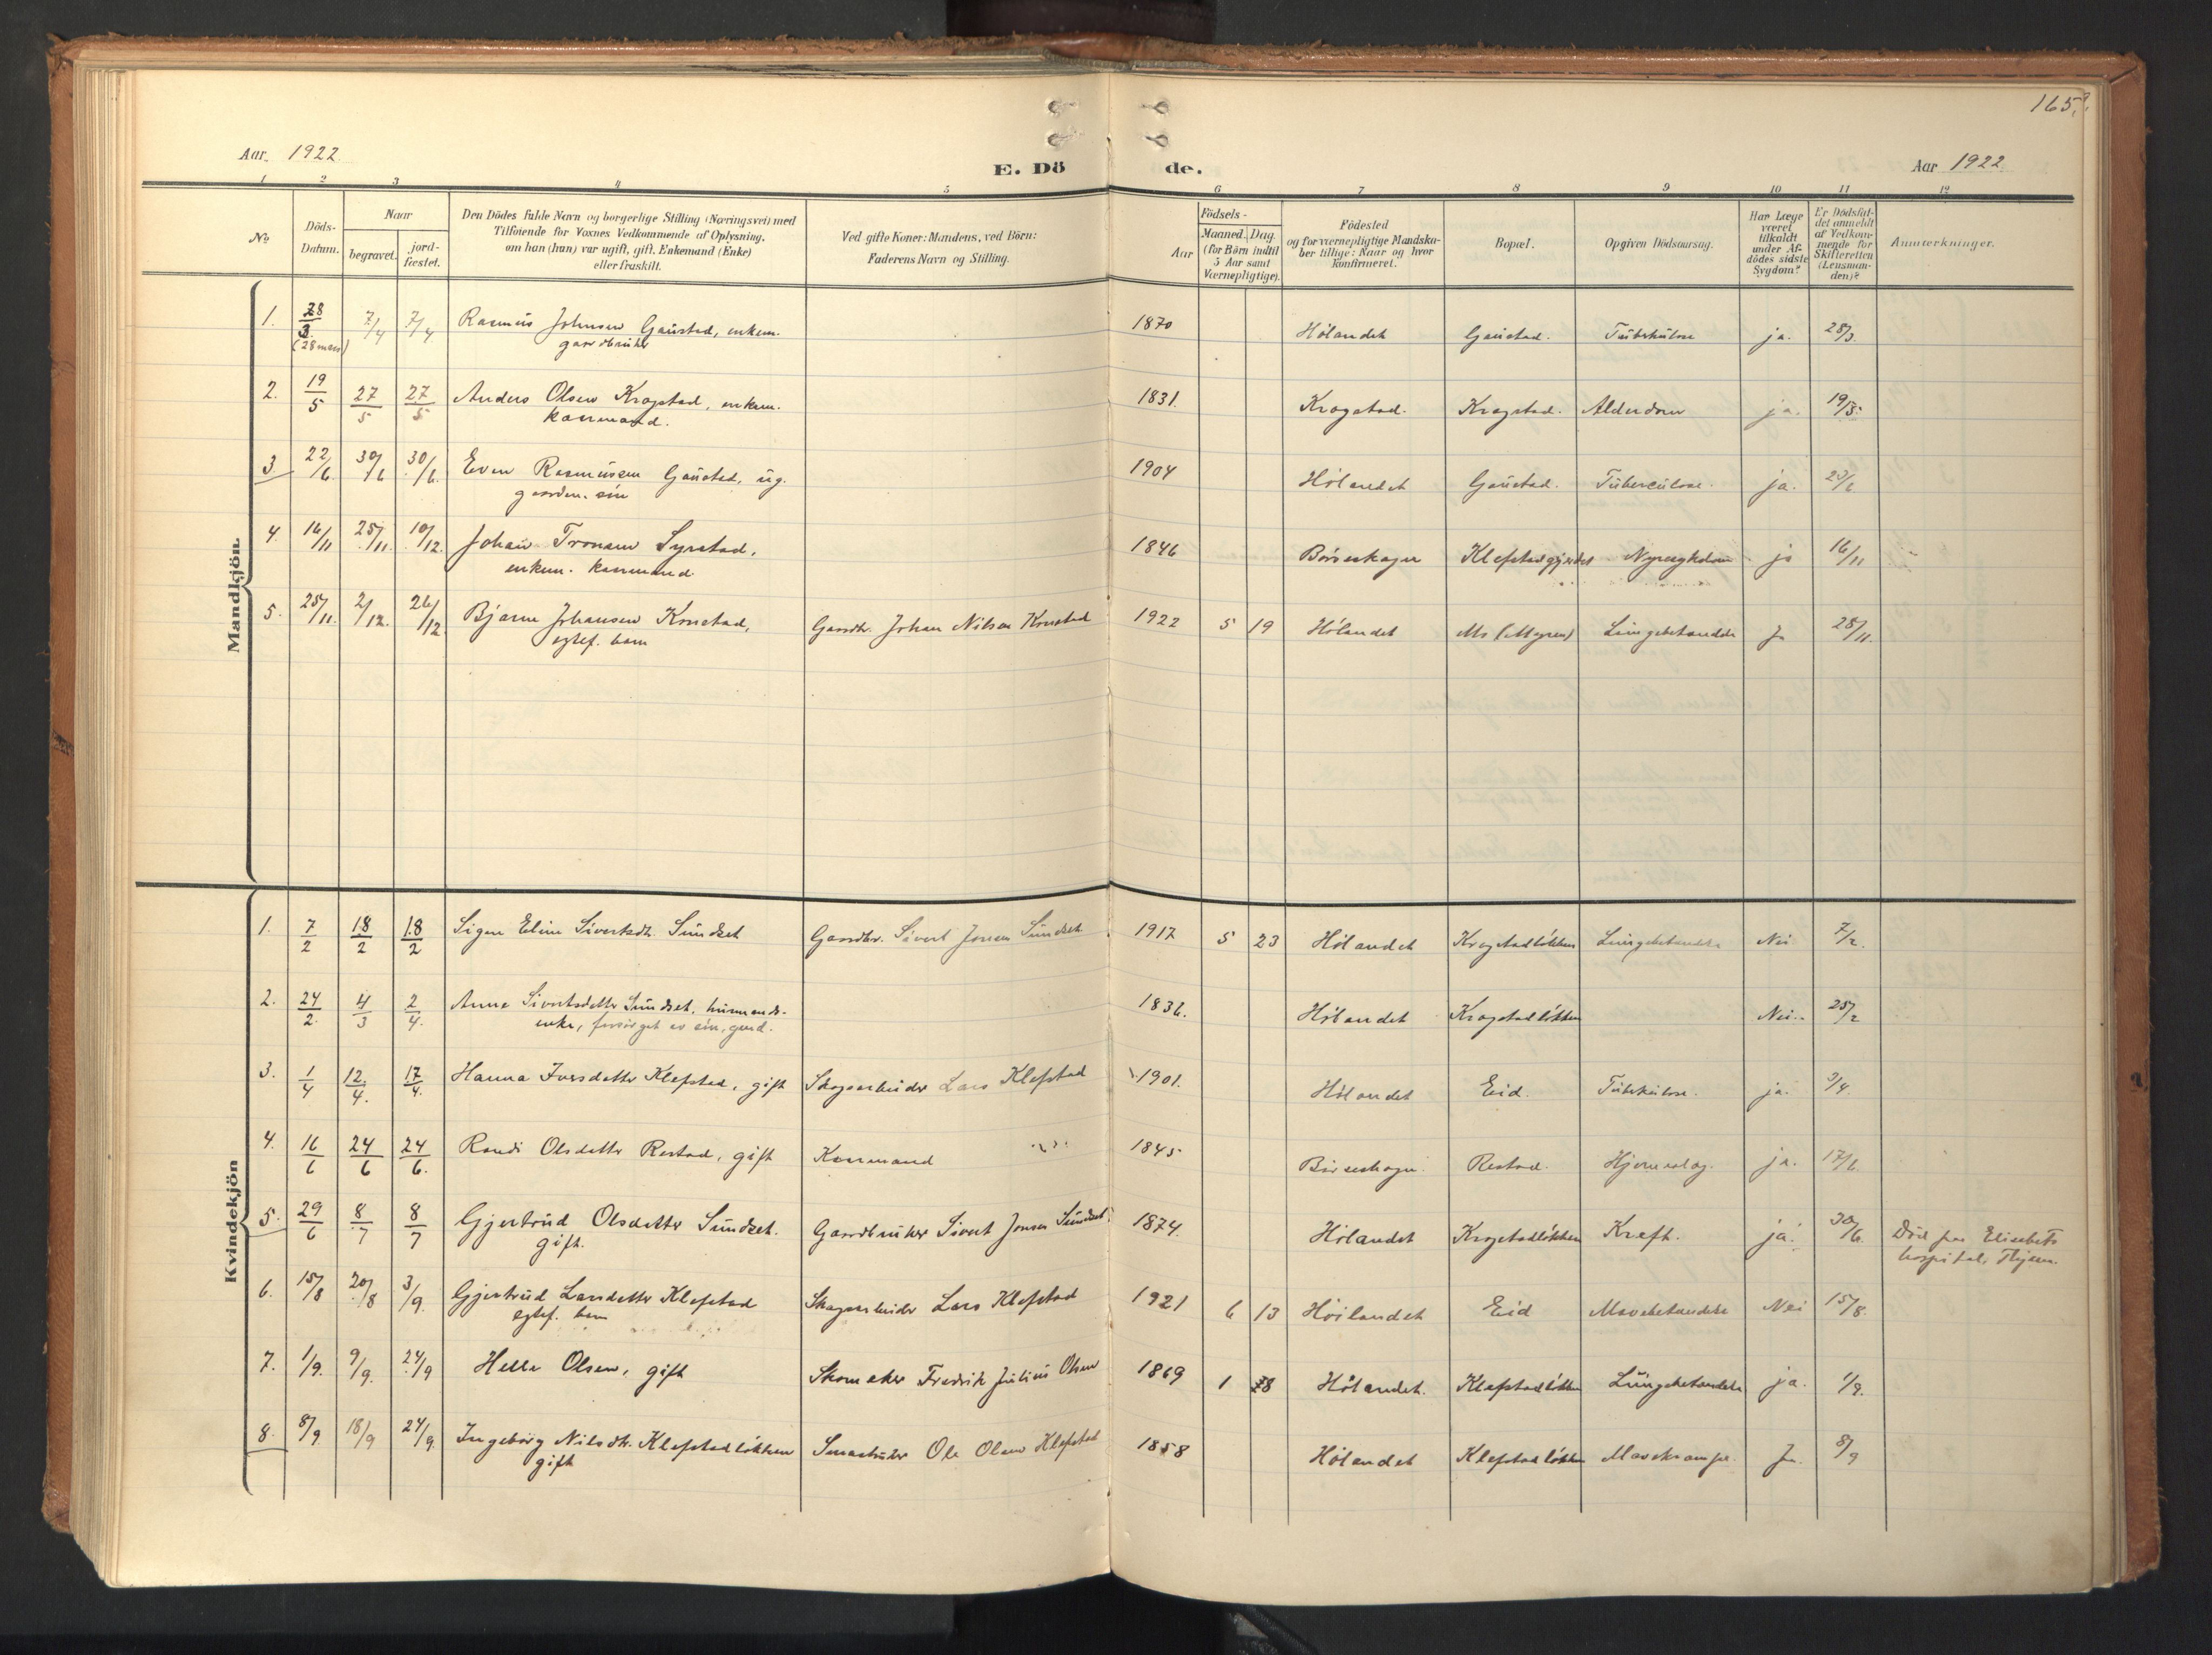 165.
Aar 1922 E. Dö de. Aar 1922
1 2 3 4 5 6 7 8 9 10 11 12
No
Döds-Datum.
Naar
begravet. jord-fæstet.
Den Dödes fulde Navn og borgerlige Stilling (Næringsvei) med
Tilföiende for Voxnes Vedkommende af Oplysning,
om han (hun) var ugift, gift, Enkemand (Enke)
eller fraskilt.
Ved gifte Koner: Mandens, ved Börn:
Faderens Navn og Stilling.
Födsels-
Aar Maaned. Dag.
(for Börn indtil
5 Aar samt
Værnepligtige).
Födested
og for værnepligtige Mandska-
ber tillige: Naar og hvor
konfirmeret.
Bopæl.
Opgiven Dödsaarsag.
Har Læge
været
tilkaldt
under Af-
dödes sidste
Sygdom?
Er Dödsfal-
det anmeldt
af Vedkom-
mende for
Skifteretten
(Lensman-
den)?
Anmærkninger.
Mandkjön.
1. 28/3. 7/4 7/4 Rasmus Johnsen Gaustad, enkem. 1870 Hölandet Gaustad. Tuberkulose ja. 28/3.
(28 mars) gaardbruker
2. 19/5 27/5 27/5 Anders Olsen Krogstad, enkem. 1831. Krogstad. Krogstad. Alderdom ja. 19/5.
kaarmand.
3 22/6. 30/6 30/6. Even Rasmussen Gaustad, ug. 1904 Hölandet Gaustad. Tuberculose. ja. 23/6
gaardm. sön
4. 16/11 25/11. 10/12. Johan Tronsen Syrstad, 1846 Börseskogn Klefstadgjerdet Nyresykdom ja 16/11
enkem. kaarmand.
5. 25/11. 2/12. 26/12. Bjarne Johansen Konstad, Gaardbr. Johan Nilsen Konstad 1922 5 19 Hölandet Mo (Myren) Lungebetændelse Ja 28/11.
egtef. barn
Kvindekjön
1. 7/2 18/2 18/2 Signe Eline Sivertsdtr. Sundset Gaardbr. Sivert Jonsen Sundset 1917 5 23 Hölandet Krogstadlökken Lungebetændelse Nei 7/2.
2. 24/2. 4/3 2/4. Anna Sivertsdatter Sundset, husmands- 1836. Hölandet Krogstadlökken Nei. 25/2
enke, forsörget av sön, gard.
3. 1/4 12/4. 17/4. Hanna Iversdatter Klefstad, gift Skogsarbeider Lars Klefstad 1901. Hölandet Eid. Tuberkulose. ja. 3/4.
4. 16/6 24/6 24/6. Randi Olsdatter Restad, gift Kaarmand 1845 Börseskogn. Restad. Hjerneslag. ja. 17/6.
5. 29/6 8/7 8/7 Gjertrud Olsdatter Sundset. Gaardbruker Sivert Jonsen Sundset. 1874. Hölandet Krogstadlökken Kreft. ja. 30/6. Död paa Elisebets
gift. hospital, Thjem.
6. 15/8 20/8 3/9. Gjertrud Larsdatter Klefstad Skogsarbeider Lars Klefstad 1921 6 13 Höilandet Eid Mavebetændelse Nei 15/8.
egtef. barn
7. 1/9. 9/9. 24/9 Hella Olsen, gift Skomaker Fredrik Julius Olsen 1869 1 28 Hölandet. Klefstadlökken Lungebetændelse ja. 1/9.
8. 8/9. 18/9 24/9. Ingeborg Nilsdtr. Klefstadlökken Smaabruker Ole Olsen Klefstad 1858 Hölandet Klefstadlökken Mavekrampe. Ja. 8/9
gift